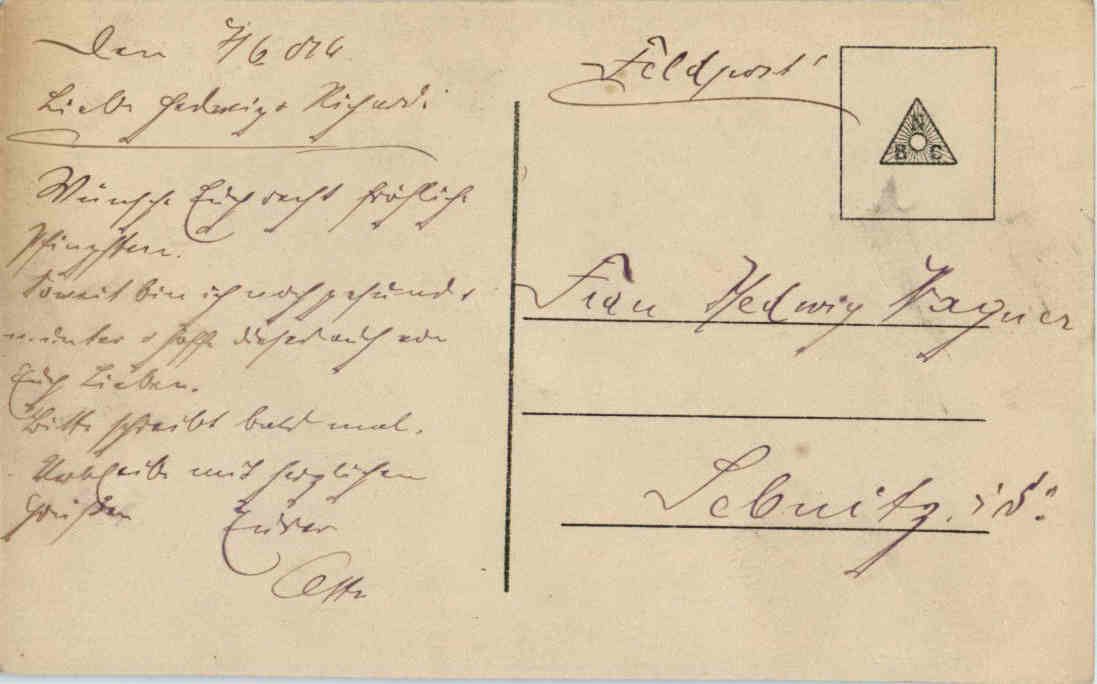 Den 7/6
Liebe Hedwig + Richard!
Wünsche Euch recht fröhliche
Pfingsten.
Soweit bin ich noch gesund +
munter + hoffe dieses auch von
Euch Lieben.
Bitte schreibt bald mal.
Verbleibe mit herzlichen
Grüßen Eurer
Otto
Feldpost
N
B C
Frau Hedwig Wagner
Sebnitz i/S.